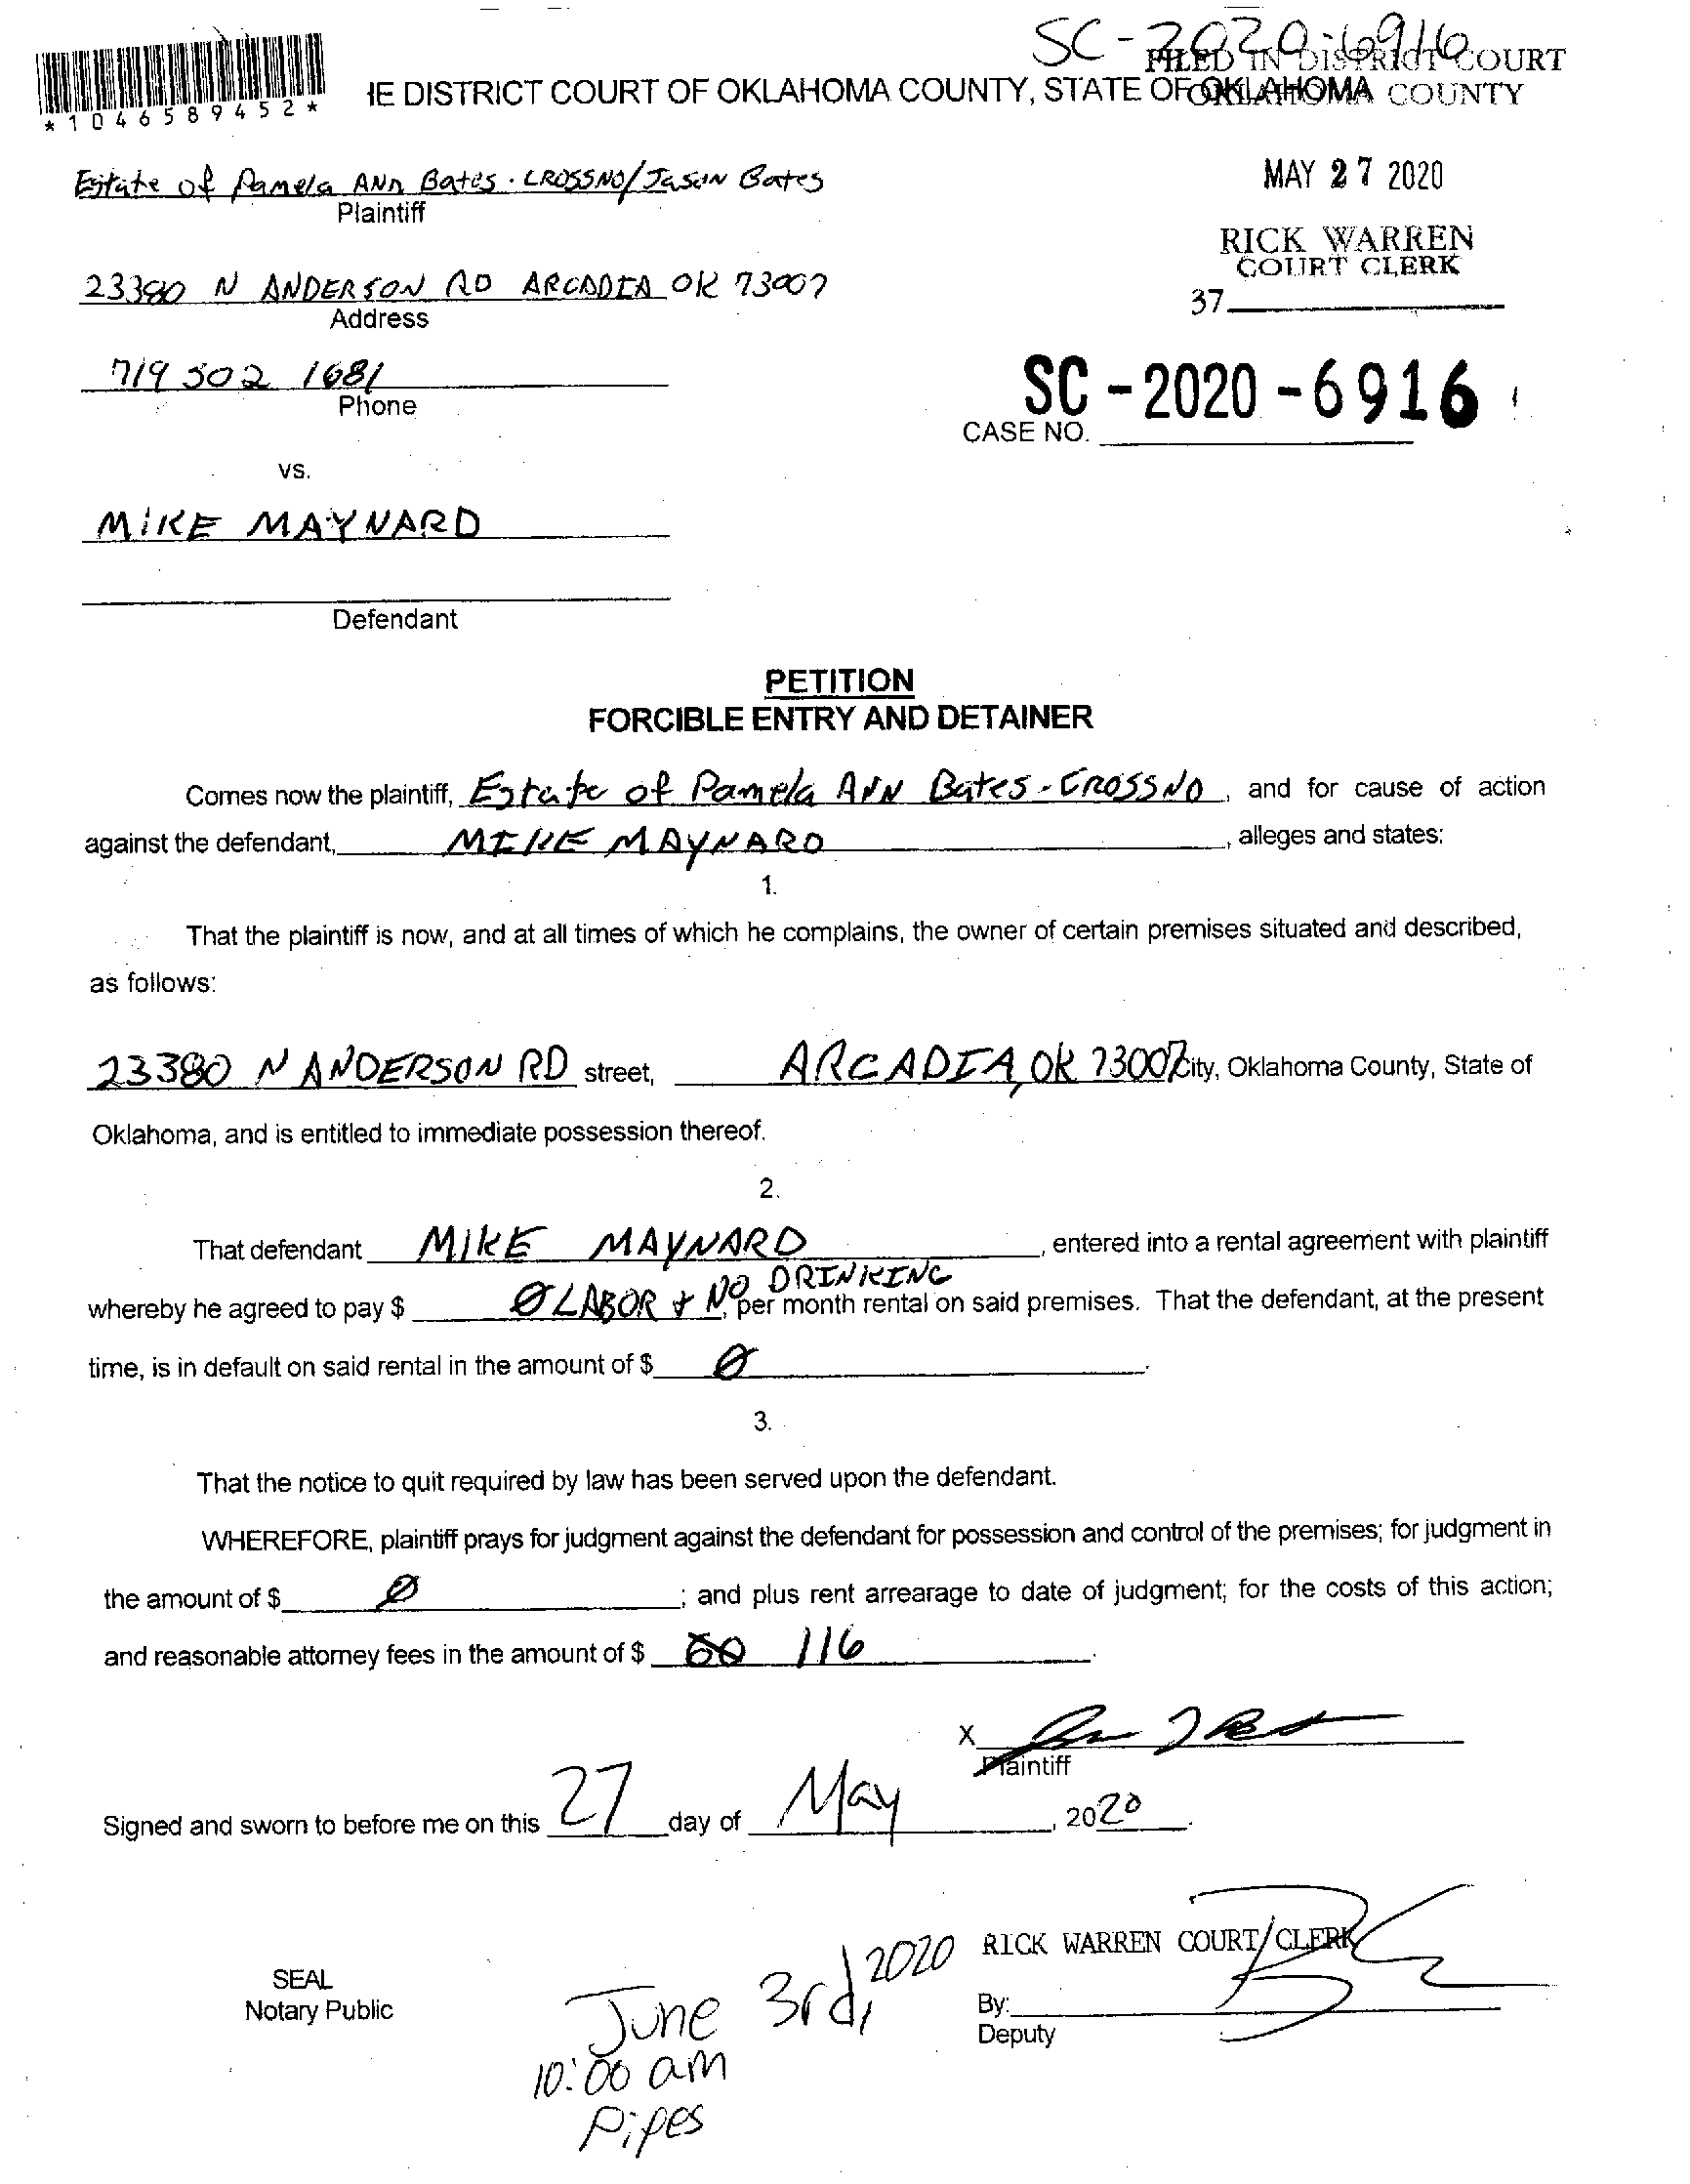 SC-2020-6916
FILED IN DISTRICT COURT
OKLAHOMA COUNTY
*1046589452*
IE DISTRICT COURT OF OKLAHOMA COUNTY, STATE OF OKLAHOMA
Estate of Pamela ANN Bates-CROSSNO/Jason Bates
Plaintiff
MAY 27 2020
RICK WARREN
COURT CLERK
37
23380 N ANDERSON RD ARCADIA OK 73007
Address
719 502 1681
Phone
SC-2020-6916
CASE NO.
vs.
MIKE MAYNARD
Defendant
PETITION
FORCIBLE ENTRY AND DETAINER
Comes now the plaintiff, Estate of Pamela ANN Bates-CROSSNO, and for cause of action
against the defendant, MIKE MAYNARD, alleges and states:
1.
That the plaintiff is now, and at all times of which he complains, the owner of certain premises situated and described,
as follows:
23380 N ANDERSON RD street, ARCADIA, OK 73007 City, Oklahoma County, State of
Oklahoma, and is entitled to immediate possession thereof.
2.
That defendant MIKE MAYNARD, entered into a rental agreement with plaintiff
whereby he agreed to pay $ Ø LABOR + NO DRINKING, per month rental on said premises. That the defendant, at the present
time, is in default on said rental in the amount of $ Ø.
3.
That the notice to quit required by law has been served upon the defendant.
WHEREFORE, plaintiff prays for judgment against the defendant for possession and control of the premises; for judgment in
the amount of $ Ø; and plus rent arrearage to date of judgment; for the costs of this action;
and reasonable attorney fees in the amount of $ 116.
X
Plaintiff
Signed and sworn to before me on this 27 day of May, 2020.
RICK WARREN COURT CLERK
SEAL
Notary Public
By:
Deputy
June 3rd, 2020
10:00 am
Pipes